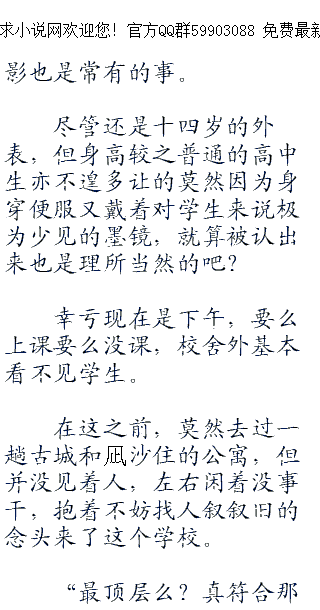 求小说网欢迎您! 官方QQ群59903088 免费最新
影也是常有的事。
尽管还是十四岁的外
表，但身高较之普通的高中
生亦不遑多让的莫然因为身
穿便服又戴着对学生来说极
为少见的墨镜，就算被认出
来也是理所当然的吧？
幸亏现在是下午，要么
上课要么没课，校舍外基本
看不见学生。
在这之前，莫然去过一
趟古城和凪沙住的公寓，但
并没见着人，左右闲着没事
干，抱着不妨找人叙叙旧的
念头来了这个学校。
“最顶层么？真符合那